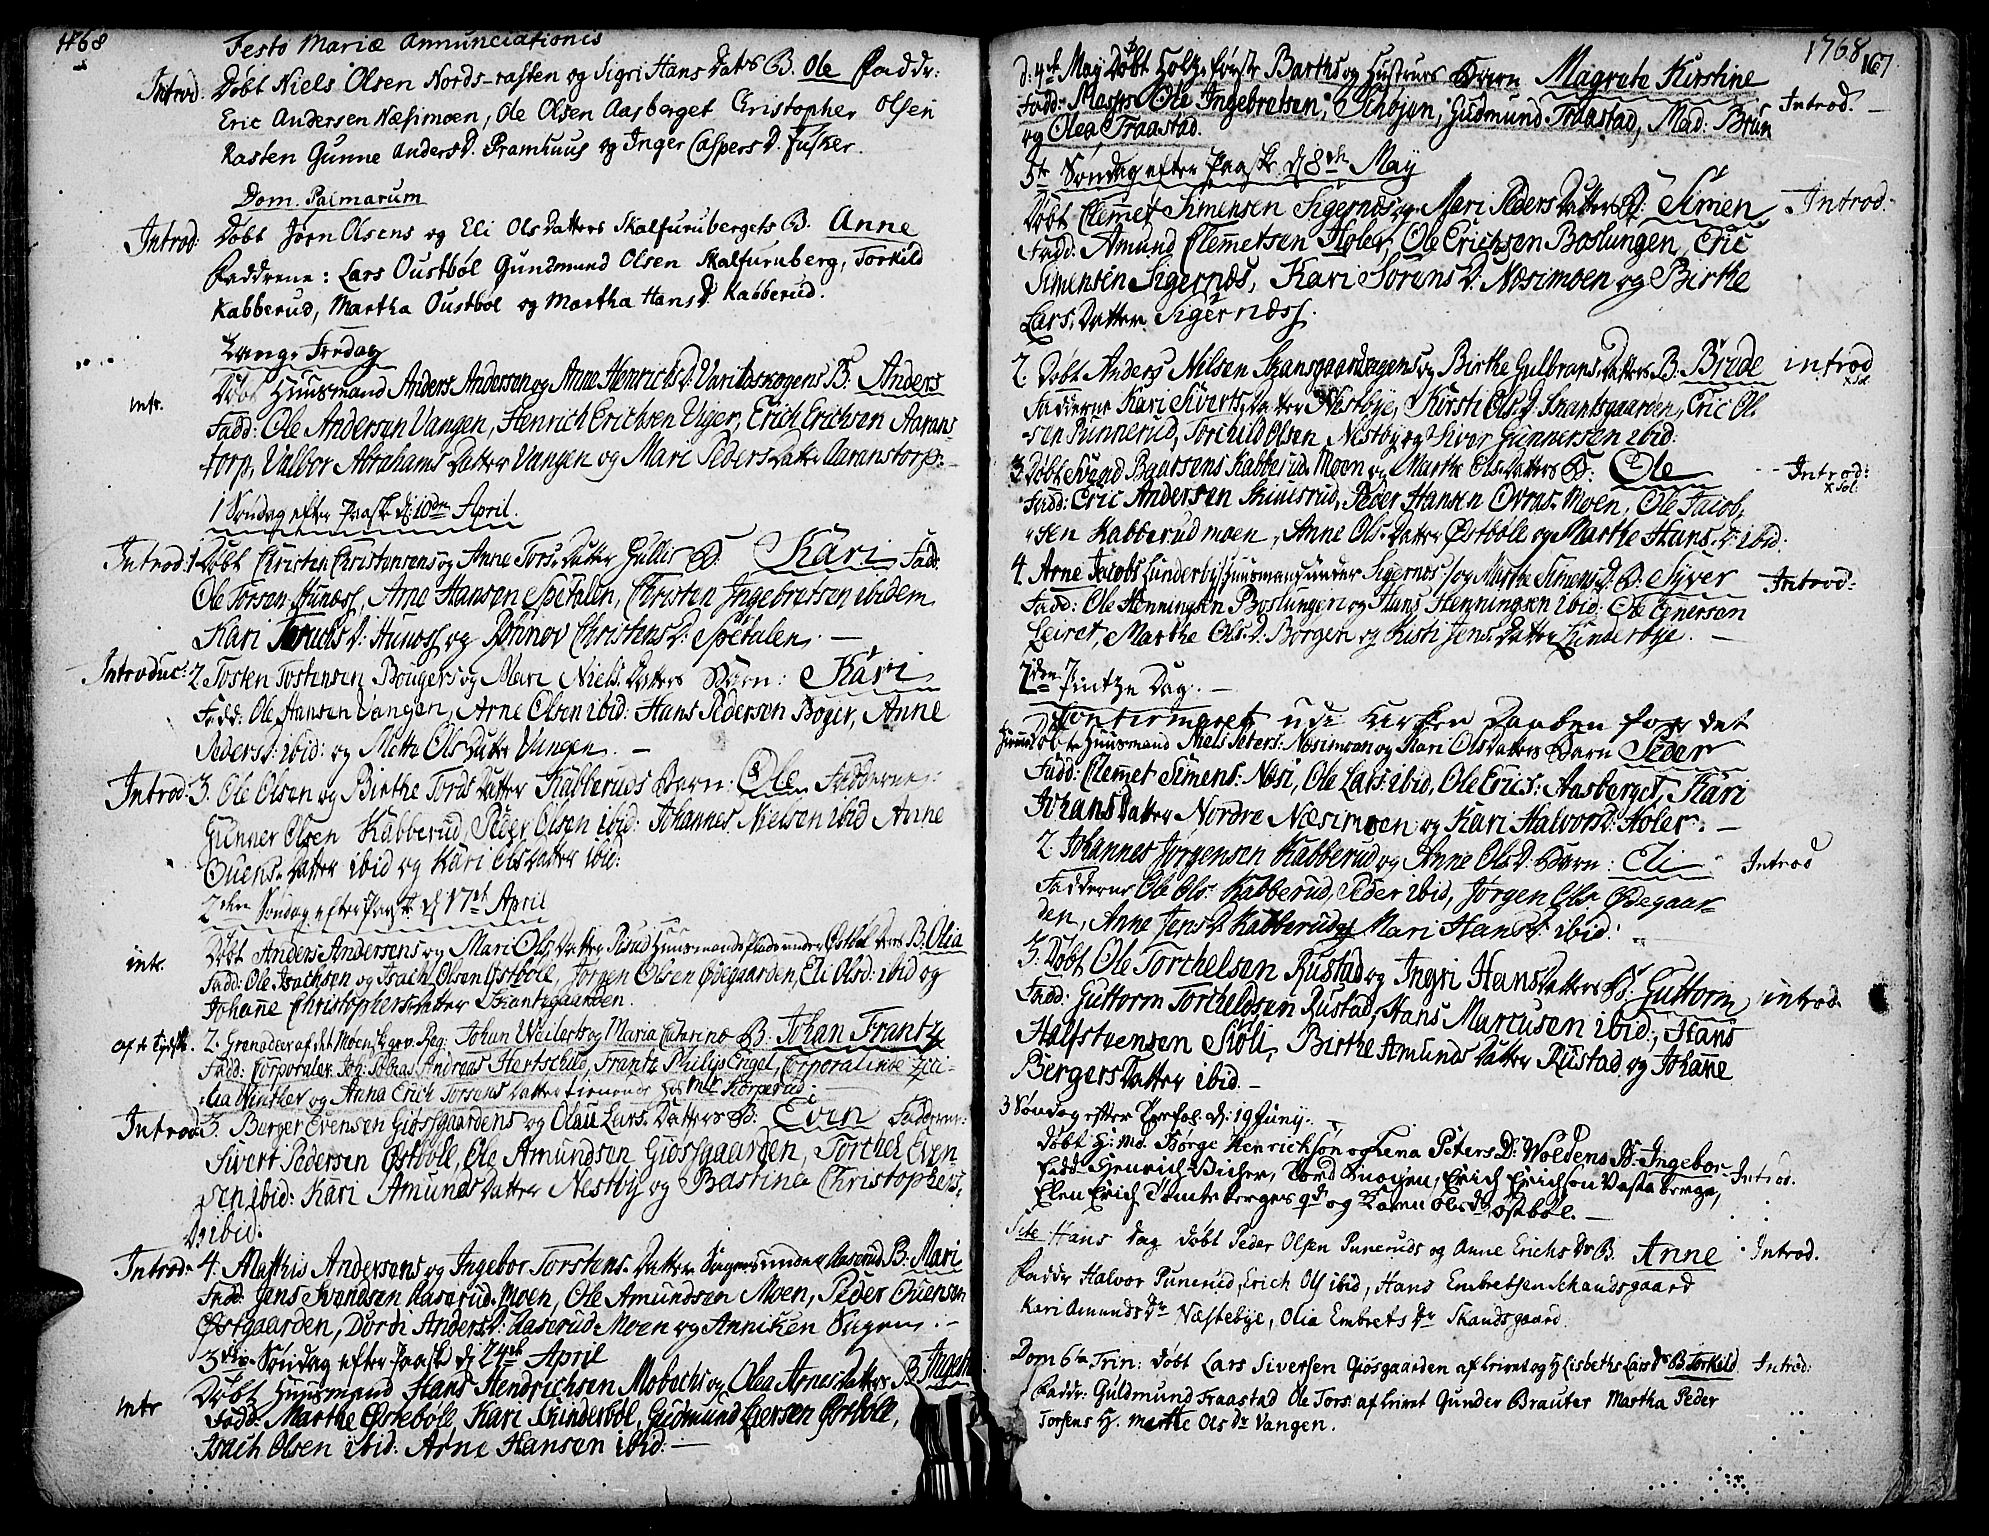 1768
Festo Mariæ Annunciationis
Introd: Døbt Niels Olsen Nords-rasten og Sigri Hans Datrs B. Ole Faddr:
Eric Andersen Næsimoen, Ole Olsen Aasberget Christopher Olsen
Rasten Gunne Anders D. Pramhuus og Inger Caspers D. Fusker.
Dom. Palmarum
Introd: Døbt Jørn Olsens og Eli Ols Datters Skalfurubergets B. Anne
Faddrene: Lars Oustbøl Gundmund Olsen Skalfuruberg, Torkild
Kabberud, Martha Oustbøl og Martha Hans D. Kabberud.
Lang-Fredag
intr. Døbt Huusmand Anders Andersen og Anne Henrichs D. Varildskogens B: Anders
Fadd: Ole Andersen Vangen, Henrich Erichsen Viger, Erich Erichsen Aarans-
torp, Valbor Abrahams Datter Vangen og Mari Peders Datter Aaranstorp.
1 Søndag efter Paaske d: 10de April.
Introd: 1 Døbt Christen Christensens og Anne Tors-Datter Gullis B: Kari Fadd:
Ole Torsen Hunæss, Arne Hansen Spetalen, Christen Ingebretsen ibidem
Kari D: Hunoss og Rønnov Christens D: Spetalen. —
Introduc: 2. Tosten Tostensen Bougers og Mari Niels-Datters Barn: Kari
Fadd: Ole Hansen Vangen, Arne Olsen ibid: Hans Pedersen Boger, Anne
Peders D: ibid: og Mette Ols Datter Vangen. —
Introd: 3. Ole Olsen og Birthe Tords Datter Kabberuds Barn: Ole Fadderne:
Gunner Olsen Kabberud, Peder Olsen ibid: Johannes Nielsen ibid Anne
Ouens-Datter ibid og Kari Ols Datter ibid:
2den Søndag efter Paaske d: 17de April
intr. Døbt Anders Andersens og Mari Ols-Datter Huusmands Plads under Østbøl B. Olia
Fadd: Ole Isachsen og Isach Olsen Østbøll, Jørgen Olsen Ødegaarden, Eli Ols D: ibid og
Johanne Christophers Datter Skantsgaarden.
2. Grenadeer af det Reg: Johan Weilert og Maria Catarina B. Johan Frantz
Fadd: Corporaler Joh: Andreas Hertschlid, Frantz Philip Engel, Corporalinde Zici-
lia Winther og Anna Erich Torsens Datter tienende hos Mr Korperud.
Introd: 3. Berger Evensen Giøssgaardens og Olau Lars-Datters B: Even Fadderne:
Sivert Pedersen Østbøll, Ole Amundsen Giøssgaarden, Torchel Even
sen ibid: Kari Amunds Datter Nestby og Bastina Christophers-
D: ibid.
Introd: 4. Mathis Andersens og Ingebor Torstens-Datter under Aaserud B: Mari
Fadd: Jens Svendsen Aaserud-Moen, Ole Amundsen Moen, Peder Ouensen
Østgaarden, Dorte Anders D: Aaserud-Moen og Anniken —
3die Søndag efter Paaske d: 24de April
intr Døbt Huusmand Hans Hendrichsen Mobechs og Olea Arnes Datters B Ingeb
Fadd: Marthe Østebøll, Kari Skinderbøl, Gudmund Eiersen Østbøll,
Isach Olsen ibid: Arne Hansen ibid. —
1768 167
d: 4de May Døbt Holtz-første Barths og Hustrues Barn Magrete Kirstine
Fadd: Ole Ingebretsen, Schøjen, Gudmund Fraastad, Mad: Brun Introd. —
og Olea Fraastad.
5te Søndag efter Paaske d: 8de May
Døbt Clemet Simensen Sigernæs og Mari Peders Datters B: Simen Introd:
Fadd: Amund Clemetsen Holer, Ole Erichsen Boslungen, Eric
Simensen Sigernæs, Kari Sørens D: Næsimoen og Birthe
Lars-Datter Sigernæss.
2. Døbt Anders Nilsen Skansgaardsegens og Birthe Gulbrans-Datters B. Brede introd
Fadderne Kari Siverts-Datter Nestbye, Kirsti Ols D: Skantsgaarden, Eric Ol-
sen Punnerud, Torchild Olsen Nestby og Siver Gunnersen ibid:
3. Døbt Svend Baarsens Kabberud-Moen og Marthe Ols-Datters B: Ole Introd:
Fadd: Eric Andersen Skiusrud, Peder Hansen Overas-Moen, Ole Jacob-
sen Kabberudmoen, Anne Ols-Datter Østbøll og Marthe Hans D. ibid:
4. Arne Jacobs Lunderby/Huusmans under Sigernæs/ og Marthe Simens D. B: Syver Introd:
Fadd: Ole Henningsen Boslungen og Hans Henningsen ibid: Ole Einersen
Leiret, Marthe Ols D. Borgen og Kirsti Jens Datter Lunderbye. —
2den Pintze Dag. —
Confirmeret udi Kirken Daaben for det
Døbte Huusmand Niels Peters: Næsimoen og Kari Ols Datters Barn Peder
Fadd: Clemet Simens: Næsi, Ole Lars: ibid, Ole Erics: Aasberget, Kari
Johans Datter Nordre Næsimoen og Kari Halvors D: Holer. —
2. Johannes Jørgensen Kabberud og Anne Ols D: Barn: Eli Introd
Fadderne Ole Ols: Kabberud, Peder ibid, Jørgen Ols: Ødegaar-
den, Anne Jens D. Kabberud og Mari Hans D: ibid:
3. Døbt Ole Torchelsen Rustad og Ingri Hans Datters B. Guttorm introd.
Fadd: Guttorm Torchelsen Rustad, Hans Marcusen ibid:, Hans
Halfstvensen Skøli, Birthe Amunds Datter Rustad og Johanne
Bergers Datter ibid. —
3 Søndag efter Trefol. d: 19 Juny.
Døbt H: Md. Børge Henrichsøn og Lena Peters D: Woldens B: Ingebor Introd.
Fadd: Henrich Vicher, Tord Knogen, Erich Erichson Vasta berge,
Elen Erich Tomteberges qde og Karen Ols dr Østbøl. —
Ste Hans Dag døbt Peder Olsen Puneruds og Anne Erichs Dr B. Anne Introd.
Faddr Halvor Punerud, Erich Ols ibid, Hans Embretsen Schandsgaard
Kari Amunds Dr Næstebye, Olia Embrets Dr Skandsgaard.
Dom 6ta Trin: døbt Lars Siversen Giøsgaarden af leiret og Hlisbeths Lars Dr B. Torkild Introd:
Faddr: Guldmund Fraastad Ole Tors: af leiret Gunder Brauter Martha Peder
Torsens H. Marthe Ols Dr Vangen.